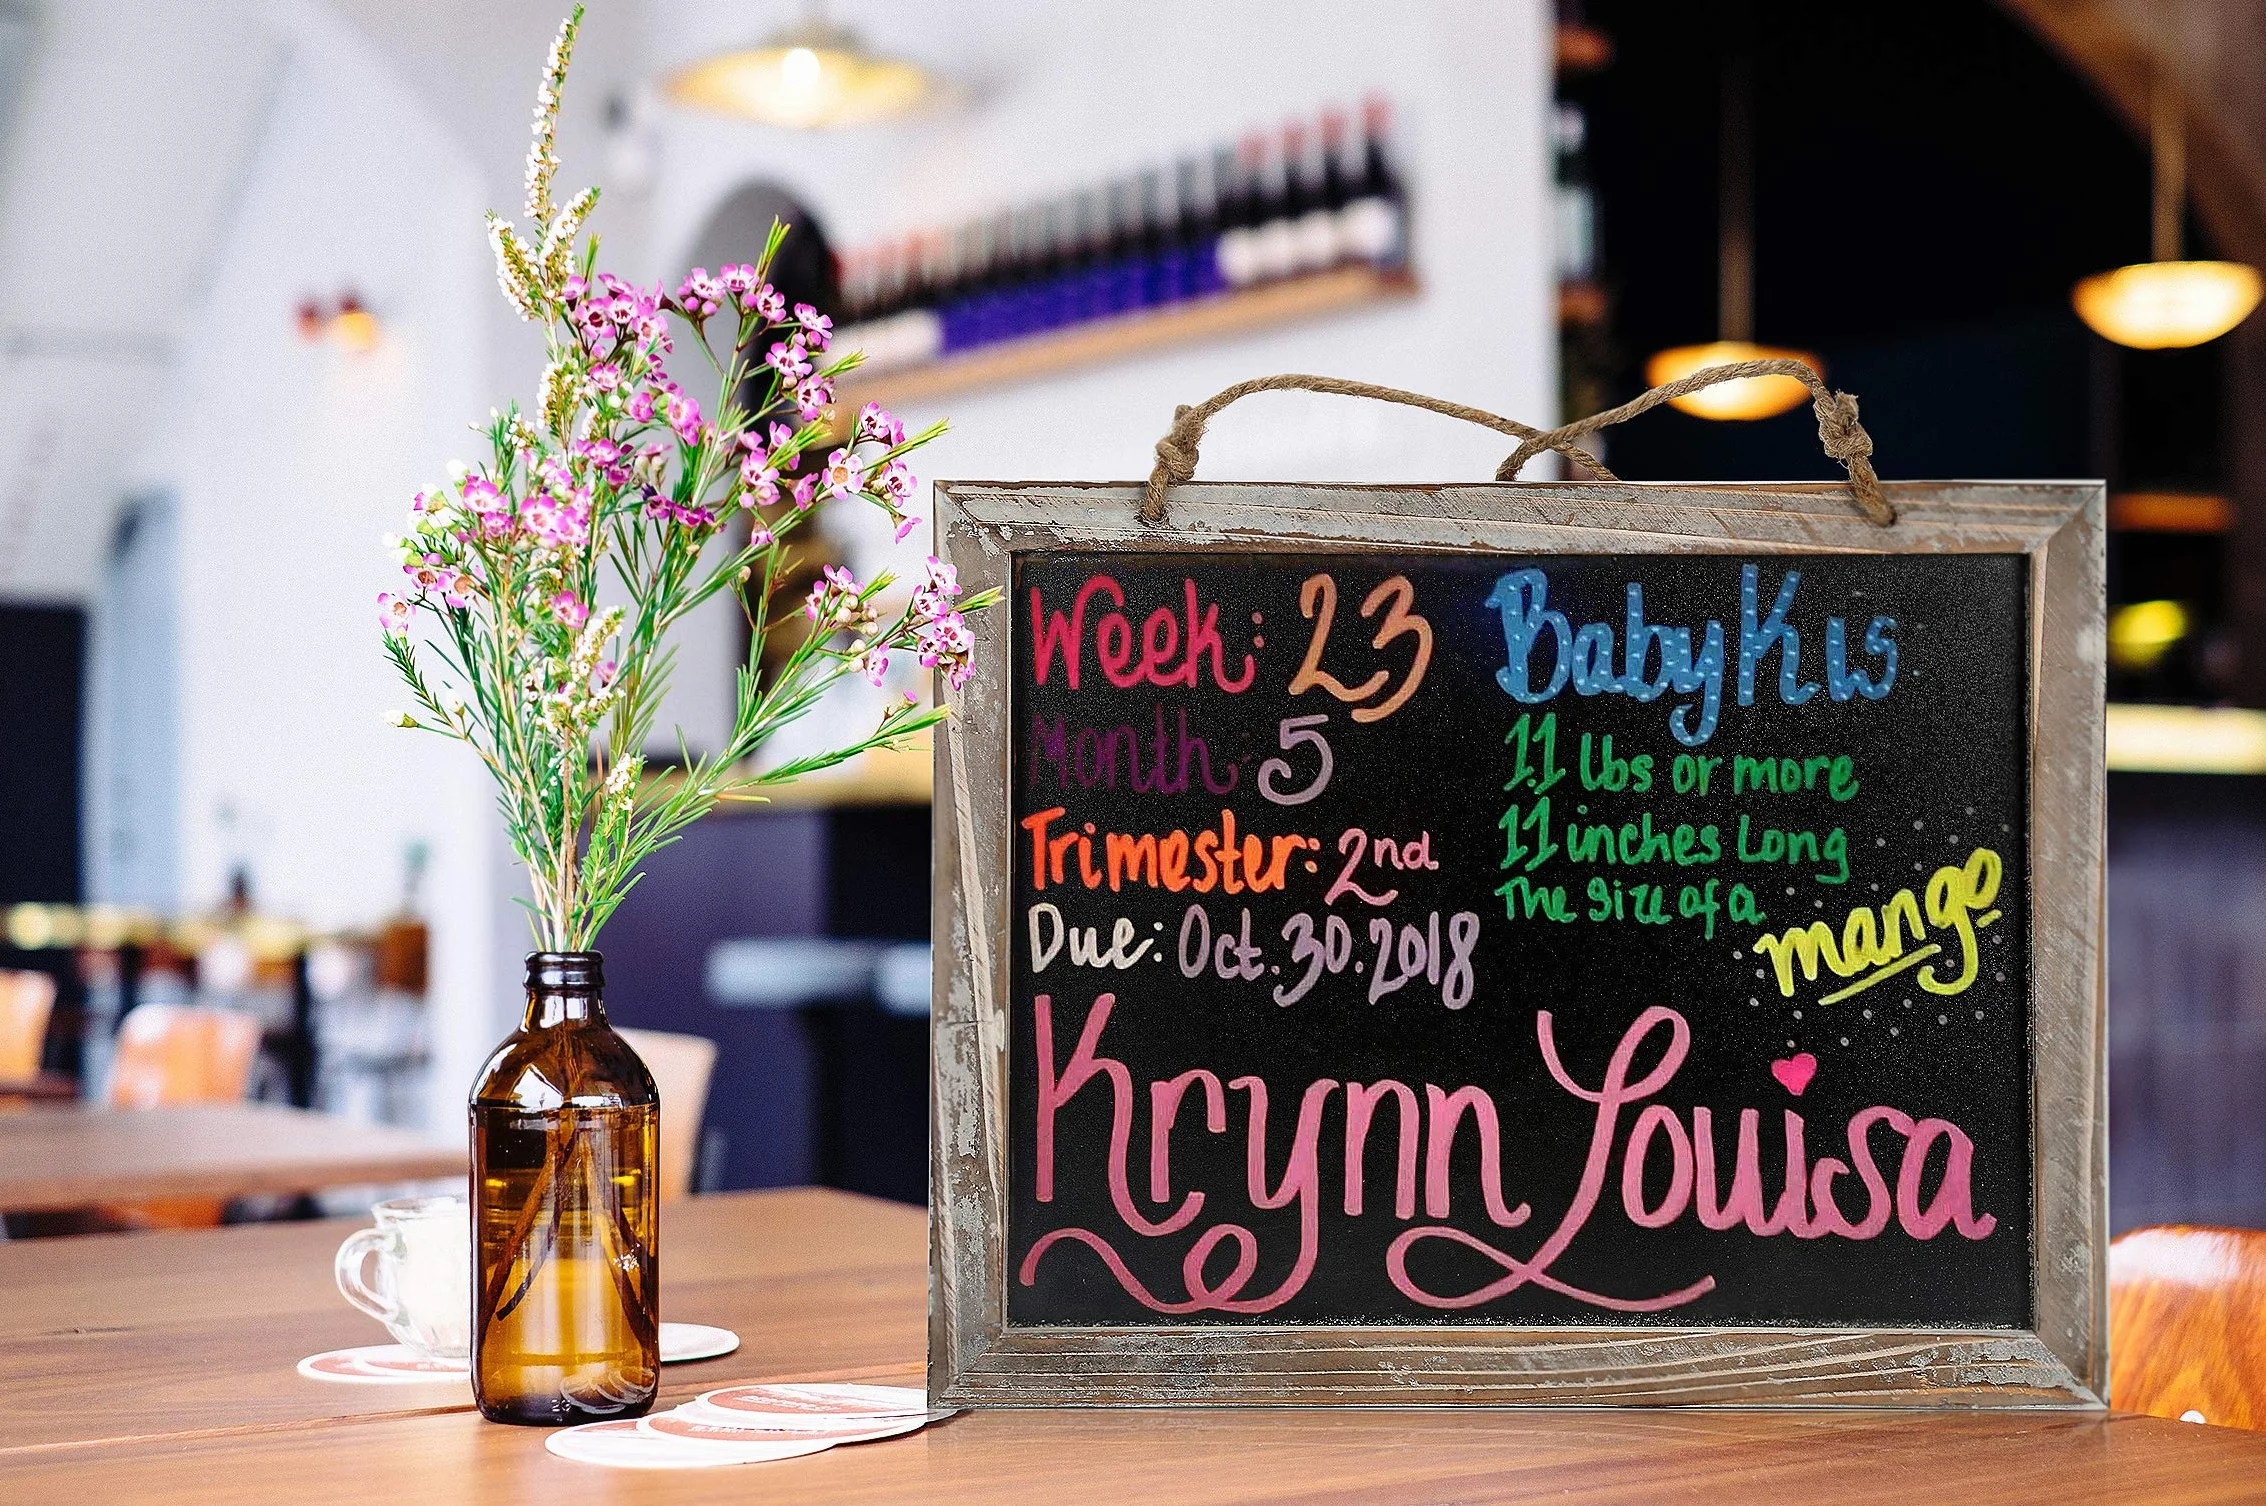 Week: 23
Month: 5
Trimester: 2nd
Due: Oct. 30. 2018
Baby K is
1.1 lbs or more
11 inches Long
The size of a
mango
Krynn Louisa